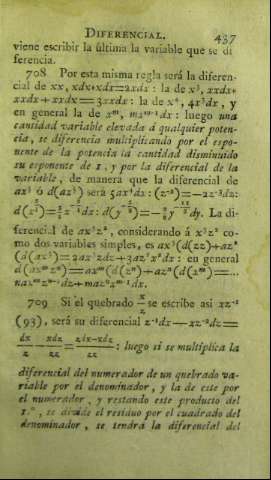 DIFERENCIAL. 437
viene escribir la última la variable que se di
ferencia.
708 Por esta misma regla será la diferen-
cial de xx, xdx+xdx=2xdx : la de x³, xxdx+
xxdx + xxdx = 3xxdx : la de x⁴, 4x³dx, y
en general la de xᵐ, mxᵐ⁻¹dx : luego una
cantidad variable elevada á qualquier poten-
cia, se diferencia multiplicando por el expo-
nente de la potencia la cantidad disminuido
su exponente de 1, y por la diferencial de la
variable, de manera que la diferencial de
ax⁵ ó d(ax⁵) será 5ax⁴dx : (z⁻²)=−2z⁻³dz:
ferencial de ax³z², considerando á x³z² co-
mo dos variables simples, es ax³(d(zz)+az²
(d(x³)=2ax³zdz+3az²x²dx : en general
d(axᵐzⁿ)=axᵐ(d(zⁿ)+azⁿ(d(xᵐ)=...
naxᵐzⁿ⁻¹dz+mazⁿxᵐ⁻¹dx.
709 Si el quebrado x/z se escribe asi xz⁻¹
(93), será su diferencial z⁻¹dx—xz⁻²dz=
dx/z — xdz/zz = zdx-xdz/zz : luego si se multiplica la
diferencial del numerador de un quebrado va-
riable por el denominador, y la de este por
el numerador, y restando este producto del
1.°, se divide el residuo por el cuadrado del
denominador, se tendrá la diferencial del